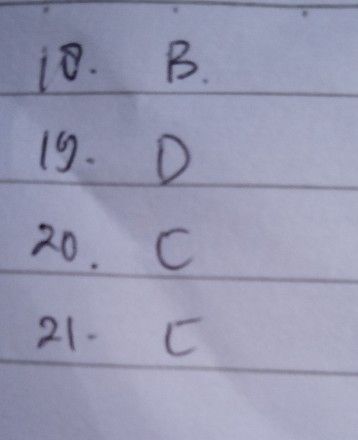 18. B.
19. D
20. C
21. C